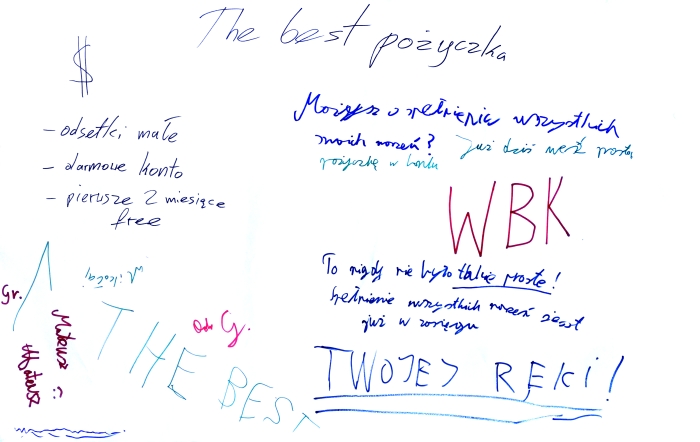 The best pożyczka
$
- odsetki małe
- darmowe konto
- pierwsze 2 miesiące
free
Marzysz o spełnienie wszystkich
swoich marzeń? Już dziś weź prostą
pożyczkę w banku
WBK
To nigdy nie było takie proste!
Spełnienie wszystkich marzeń jest
już w zasięgu
TWOJEJ RĘKI!
Mikołaj
Gr.
Mateusz :)
Mateusz
G.
THE BEST